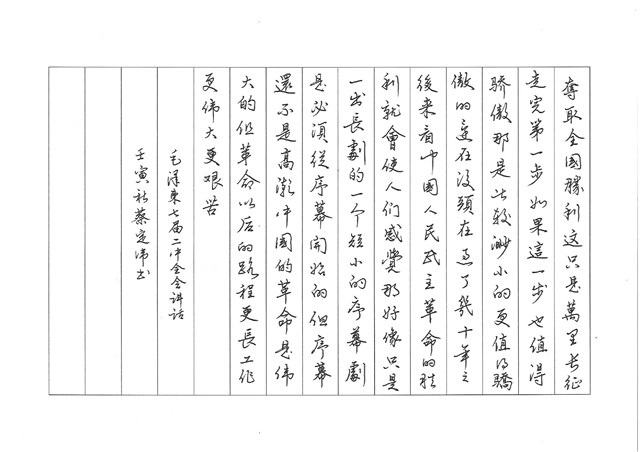 奪取全國勝利這只是萬里长征
走完第一步如果這一步也值得
骄傲那是比較渺小的更值得驕
傲的還在後頭在过了幾十年之
後来看中國人民民主革命的胜
利就會使人们感覺那好像只是
一出長劇的一个短小的序幕劇
是必須從序幕開始的但序幕
還不是高潮中國的革命是伟
大的但革命以后的路程更長工作
更伟大更艰苦
毛泽東七届二中全会讲话
壬寅秋蔡定伟书